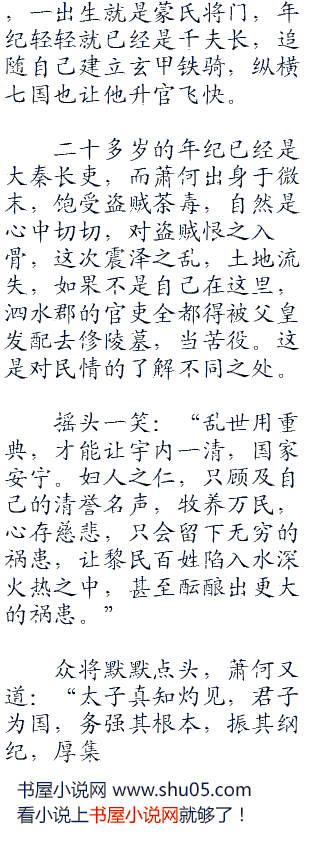 ，一出生就是蒙氏将门，年
纪轻轻就已经是千夫长，追
随自己建立玄甲铁骑，纵横
七国也让他升官飞快。
二十多岁的年纪已经是
大秦长吏，而萧何出身于微
末，饱受盗贼荼毒，自然是
心中切切，对盗贼恨之入
骨，这次震泽之乱，土地流
失，如果不是自己在这里，
泗水郡的官吏全都得被父皇
发配去修陵墓，当苦役。这
是对民情的了解不同之处。
摇头一笑：“乱世用重
典，才能让宇内一清，国家
安宁。妇人之仁，只顾及自
己的清誉名声，牧养万民，
心存慈悲，只会留下无穷的
祸患，让黎民百姓陷入水深
火热之中，甚至酝酿出更大
的祸患。”
众将默默点头，萧何又
道：“太子真知灼见，君子
为国，务强其根本，振其纲
纪，厚集
书屋小说网 www.shu05.com
看小说上书屋小说网就够了！